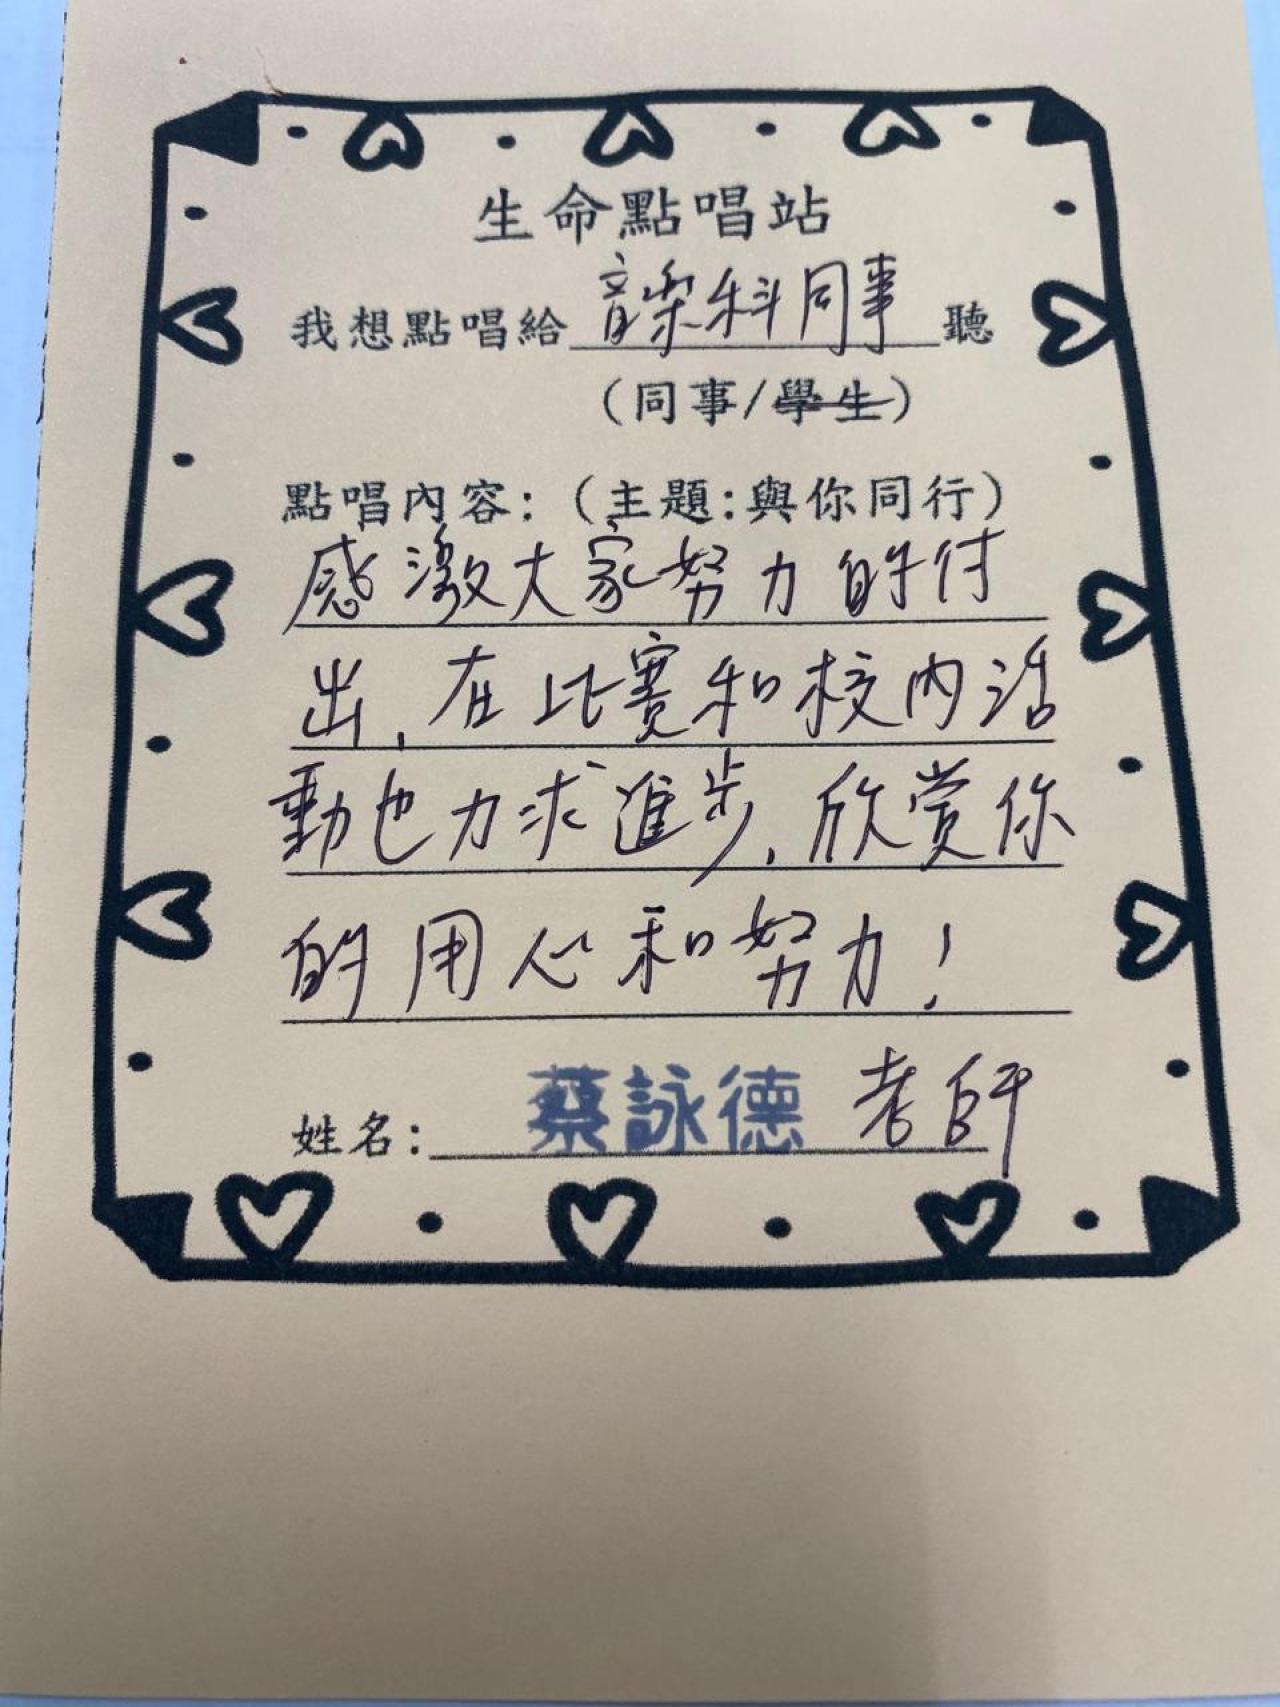 生命點唱站
我想點唱給音樂科同事聽
(同事/學生)
點唱內容:(主題:與你同行)
感激大家努力的付
出,在比賽和校內活
動也力求進步,欣賞你
的用心和努力!
姓名:蔡詠德老師